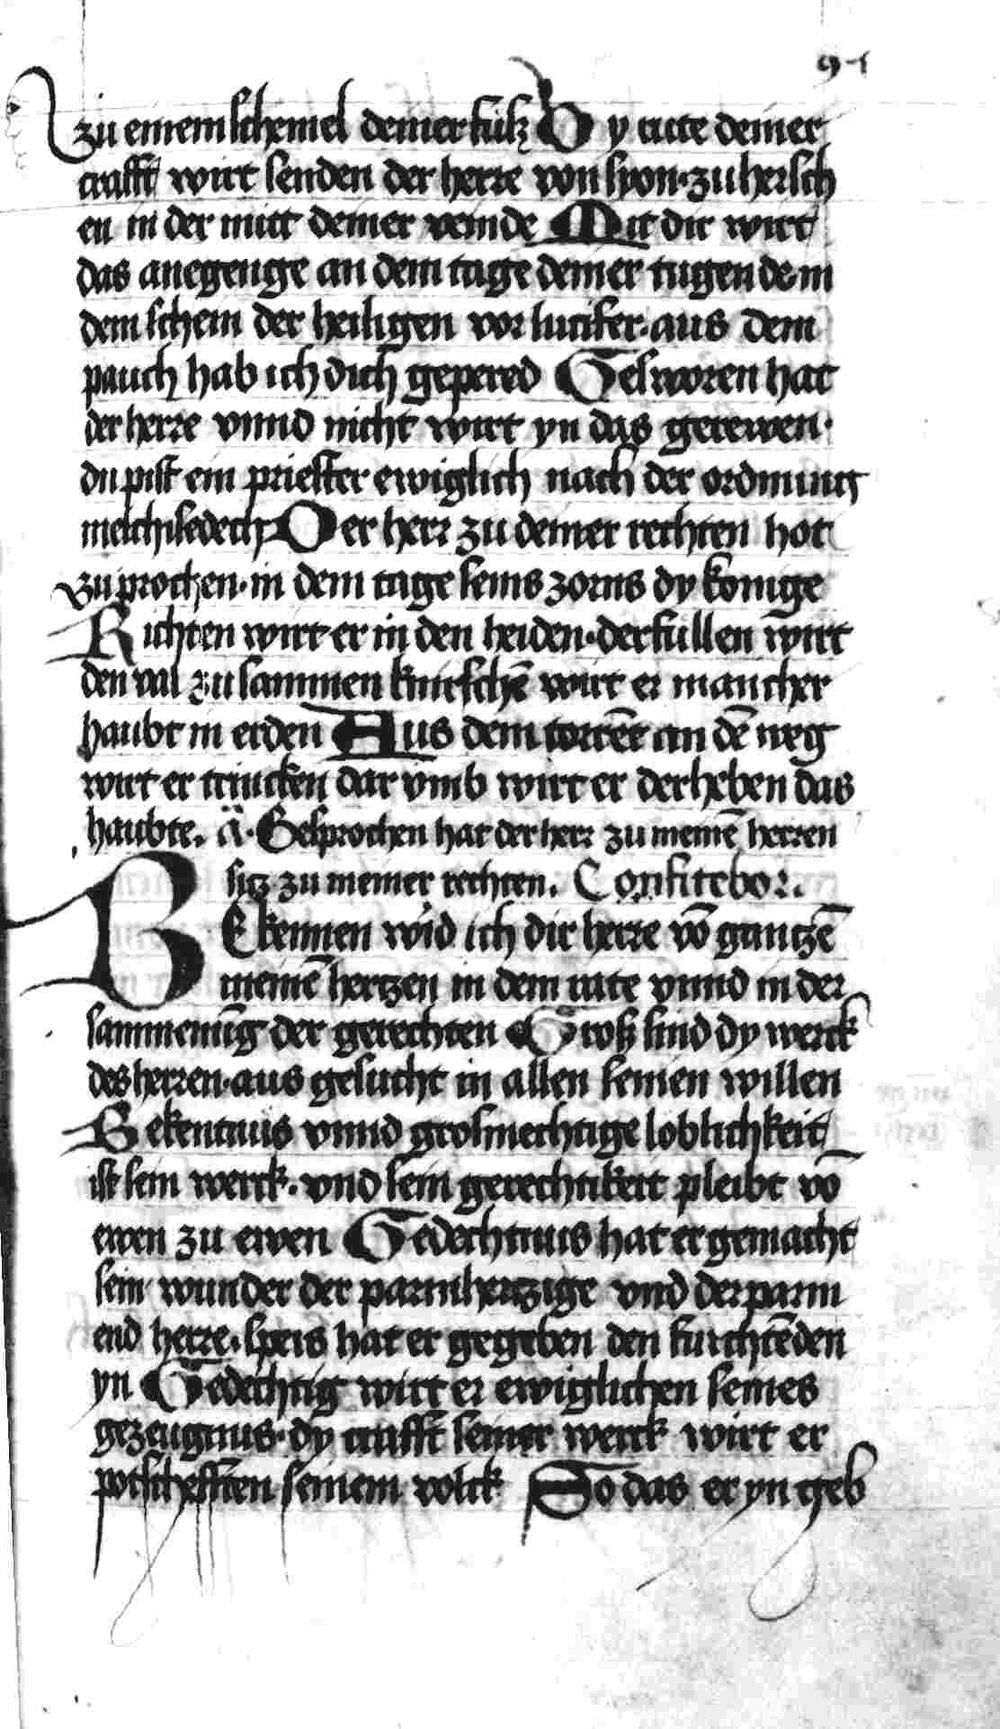 91
zu einem schemel deiner fusz Dy rute deiner
crafft wirt senden der herre von syon · zu hersch
en in der mitt deiner veinde Mit dir wirt
das anegenge an dem tage deiner tugende · in
dem schein der heiligen vor lucifer · aus dem
pauch hab ich dich gepered Gesworen hat
der herre vnnd nicht wirt yn das gerewen ·
du pist ein priester ewiglich nach der ordnung
melchisedech Der herr zu deiner rechten hot
zu prochen · in dem tage seins zorns dy konige
Richten wirt er in den heiden · derfullen wirt
den val zu sammen knirschē wirt er mancher
haubt in erden Aus dem torrēt an dē weg
wirt er trincken dar vmb wirt er derheben das
haubte. ä · Gesprochen hat der herr zu meinē herren
sitz zu meiner rechten. Confitebor.
BEkennen wird ich dir herre vō gantzē
meinē hertzen in dem rate vnnd in der
sammenūg der gerechten Grosz sind dy werck
des herren · aus gesucht in allen seinen willen
Bekentnus vnnd grosmechtige loblichkeit
ist sein werck · vnd sein gerechtikeit pleibt vō
ewen zu ewen Gedechtnus hat er gemacht
sein wunder der parmhertzige vnd derparm
end herre · speis hat er gegeben den furchtēden
yn Gedechtig wirt er ewiglichen seines
gezeugnus · dy crafft seiner werck wirt er
potschefften seinem volck So das er yn geb